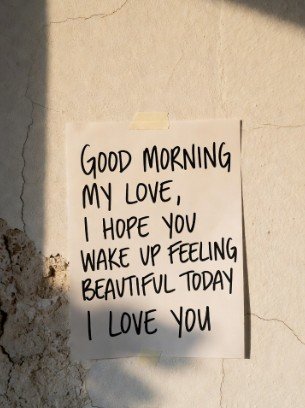 GOOD MORNING
MY LOVE,
I HOPE YOU
WAKE UP FEELING
BEAUTIFUL TODAY
I LOVE YOU